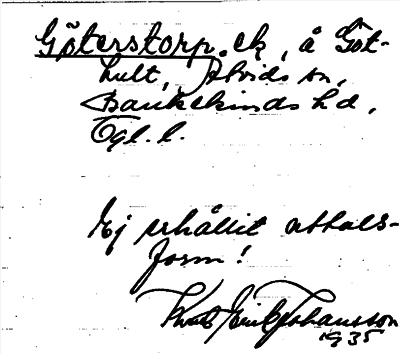 Göterstorp, ek, å Göt-
hult, Arvids sn,
Bankekinds hd,
Ögl. l.
Ej erhållit uttals-
form!
Knut Erik Johansson
1935